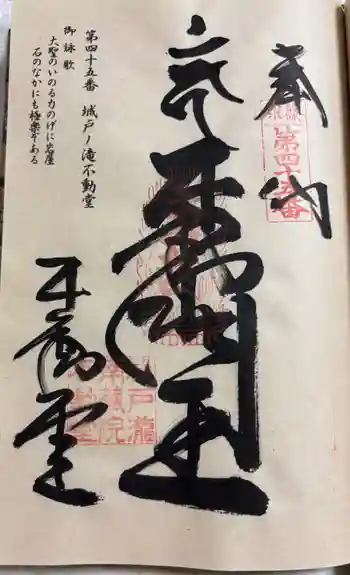 第四十五番
不動明王
第四十五番　城戸ノ滝不動堂
御詠歌
大聖のいのる力のげに岩屋
石のなかにも極楽ぞある
不動堂
南蔵院